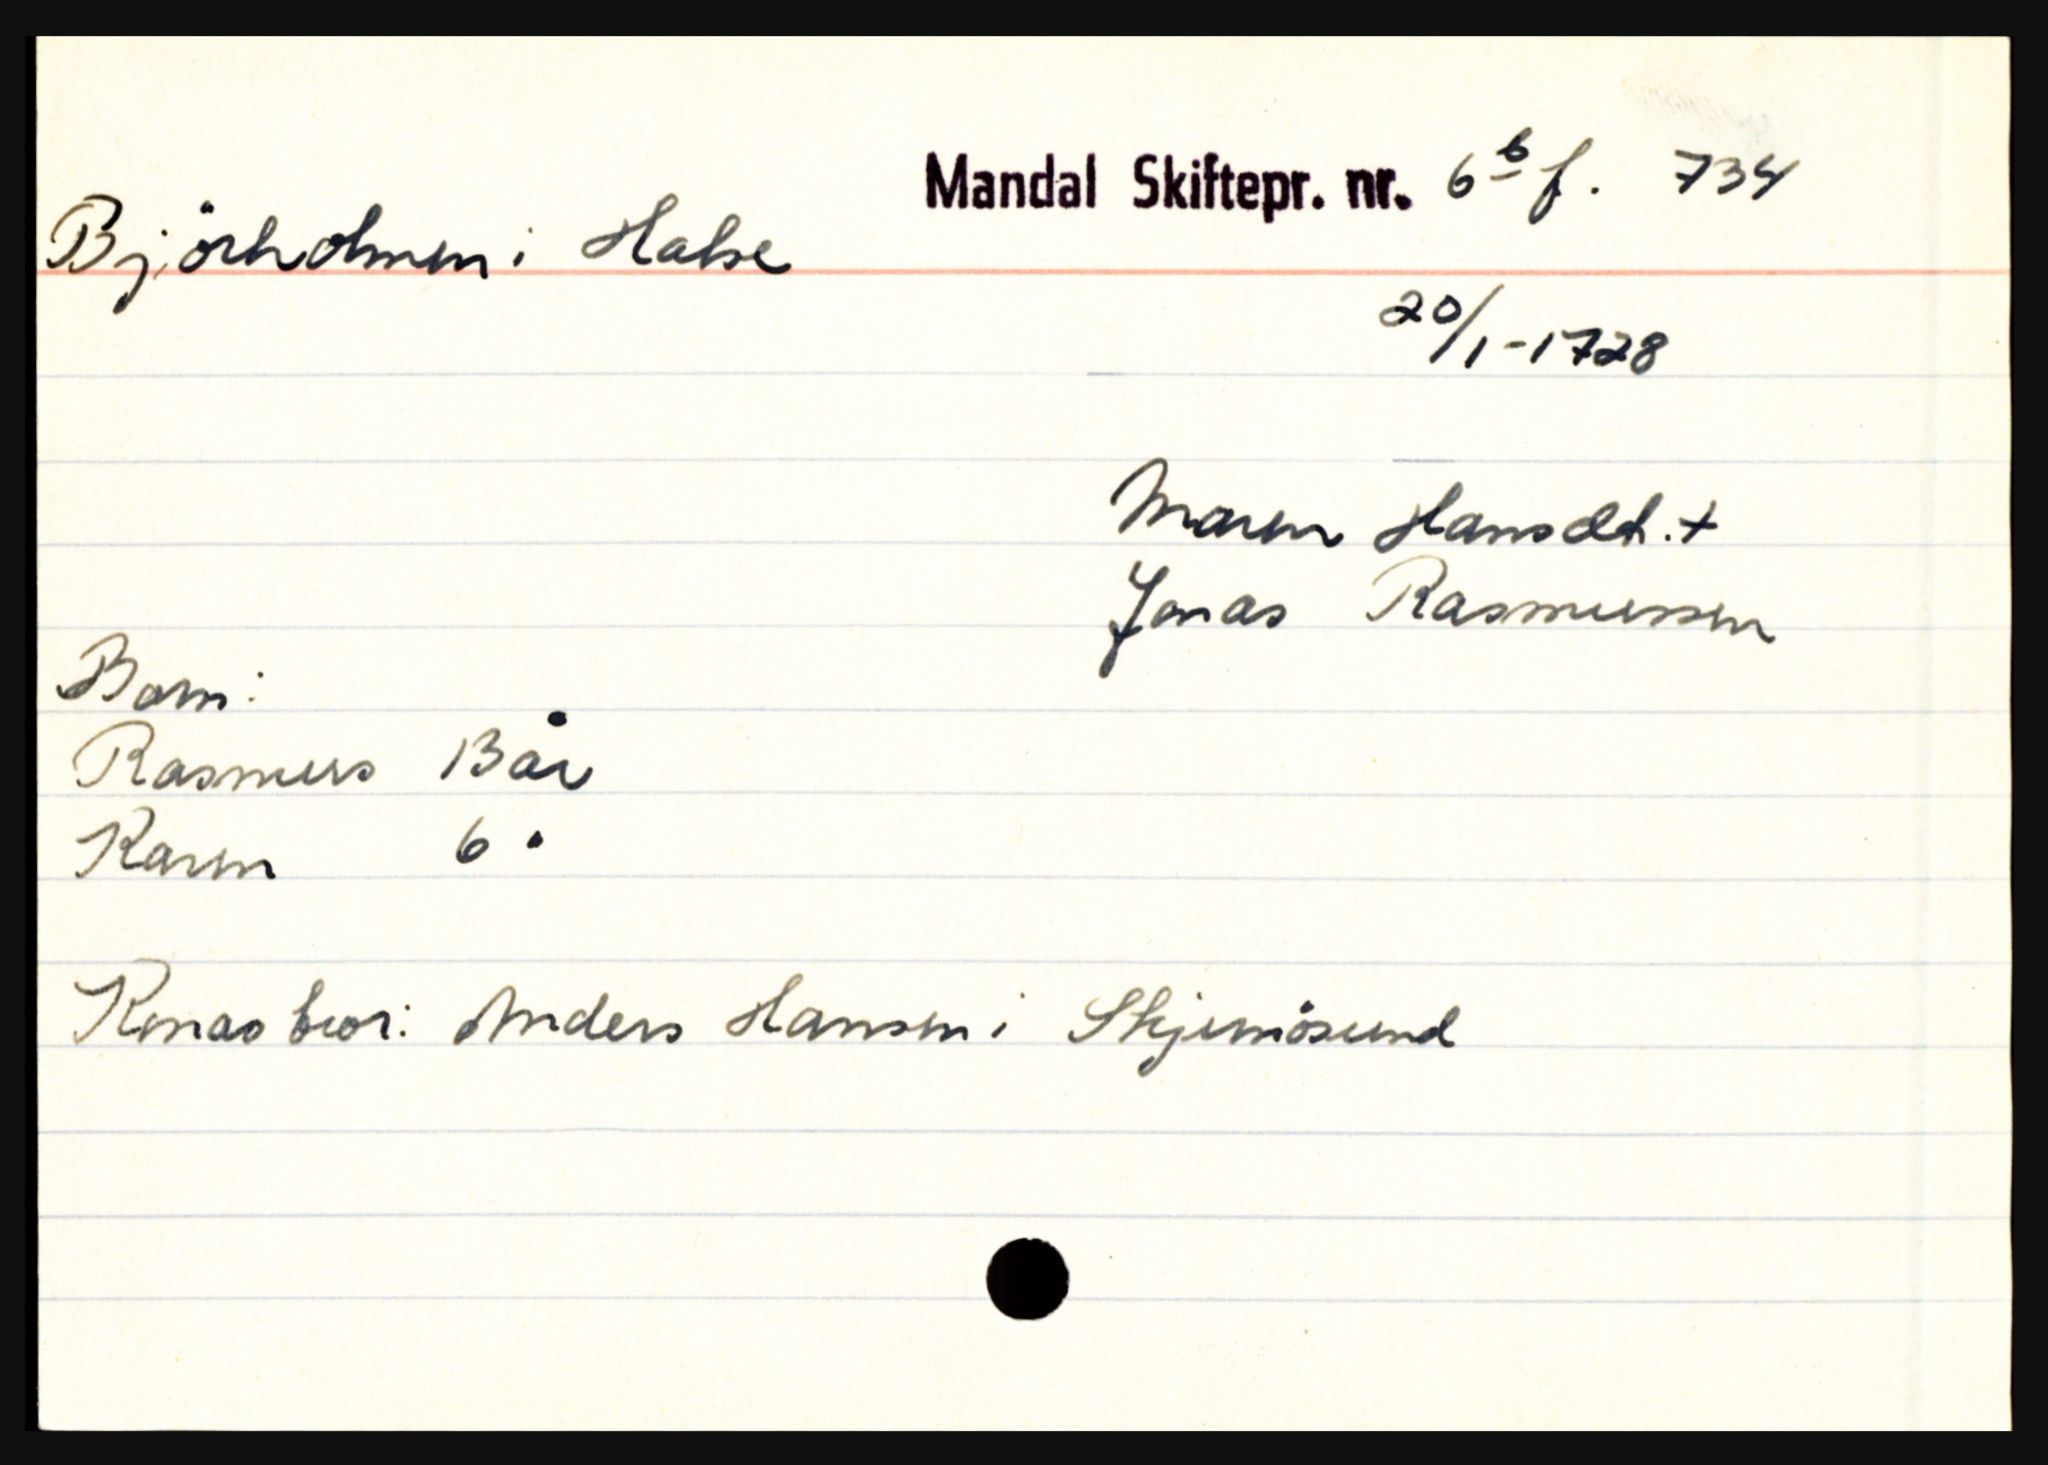 Mandal Skiftepr. nr. 6b f. 734
Björholmen i Halse
20/1-1728
Maren Hansdt. +
Jonas Rasmussen
Born:
Rasmus 13 år
Karen 6 "
Konas bror: Anders Hansen i Skjernösund